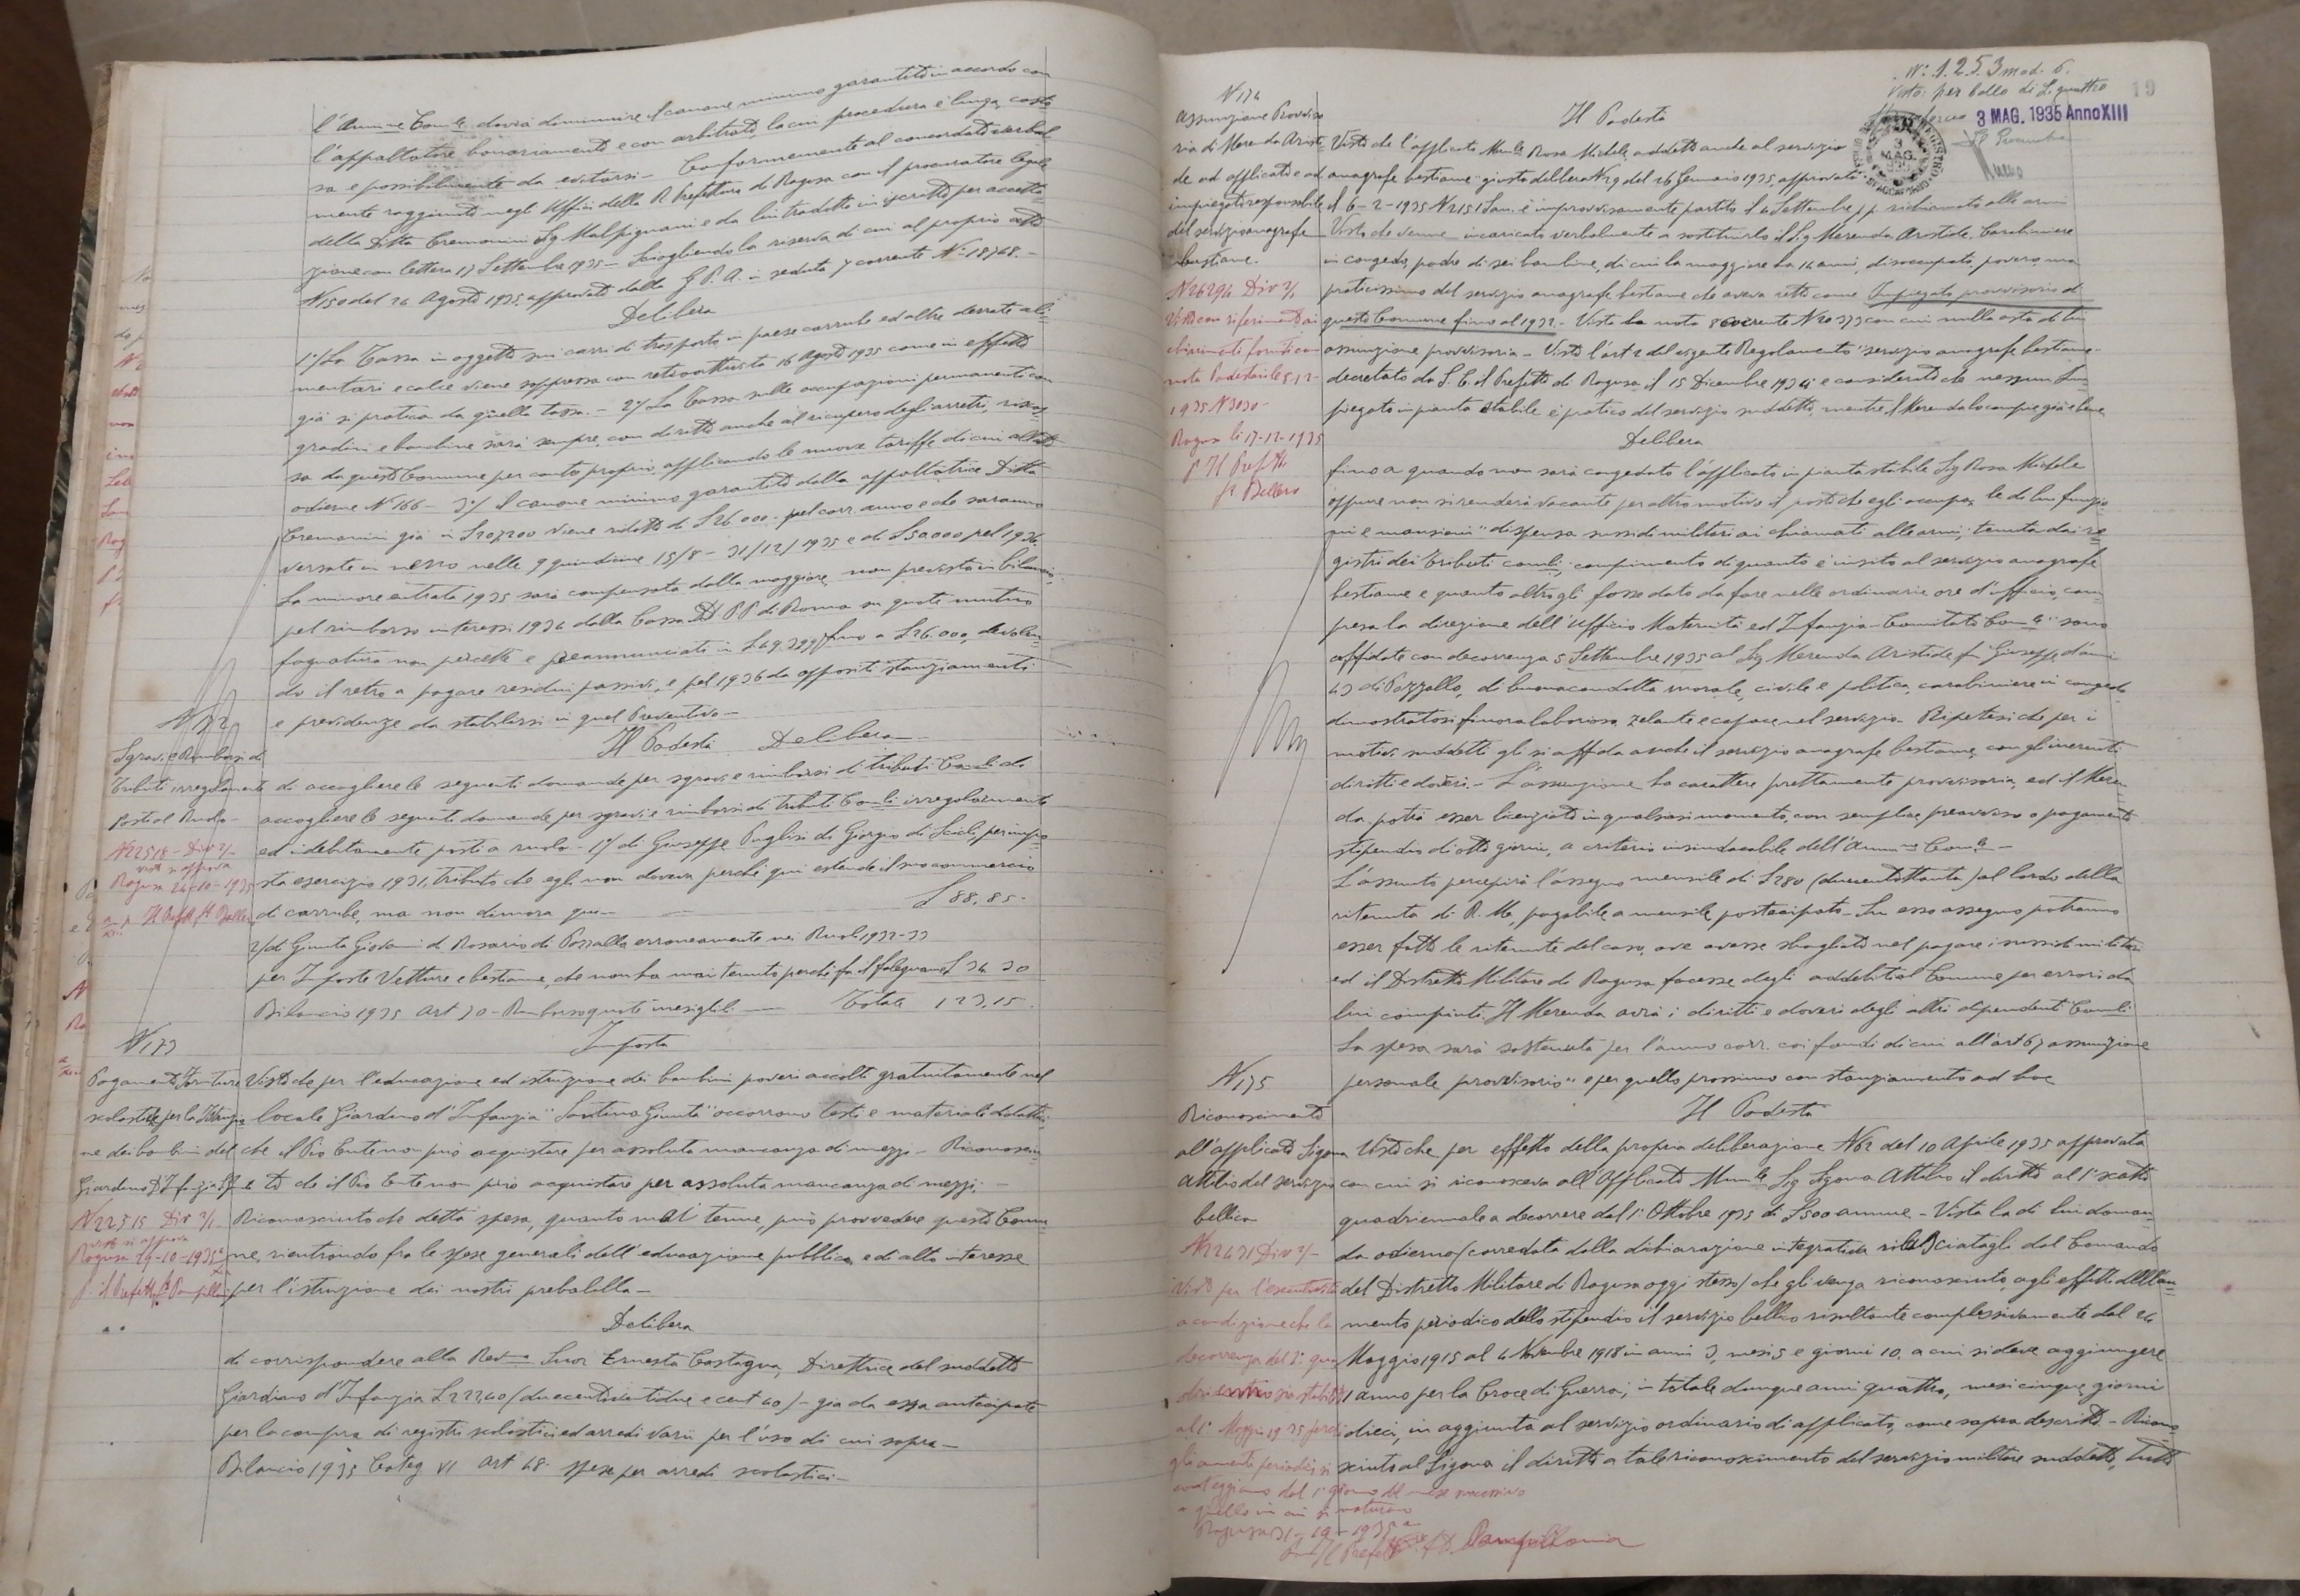 l'Amm.ne Com.le dovrà diminuire il canone minimo garantito in accordo con
l'appaltatore bonariamente e con arbitrato, la cui procedura è lunga, costo
sa e possibilmente da evitarsi - Conformemente al concordato verbal
mente raggiunto negli Uffici della R. Prefettura di Ragusa con il procuratore legale
della Ditta Cremonini Sig Malpignani e da lui tradotto in iscritto per accetta
zione con lettera 17 Settembre 1935 - Sciogliendo la riserva di cui al proprio atto
N 150 del 24 Agosto 1935 approvato dalla G.P.A. in seduta 7 corrente N. 18768. -
Delibera
1°/ La Tassa in oggetto sui carri di trasporto in paese carrube ed altre derrate ali=
mentari e calce viene soppressa con retroattività 16 Agosto 1935 come in effetto
già si pratica da quella tassa. - 2°/ La Tassa sulle occupazioni permanenti con
gradini e banchine sarà sempre, con diritto anche al ricupero degli arretri, riscos
sa da questo Comune per conto proprio, applicando le nuove tariffe di cui all'atto
odierno N 166 - 3°/ Il canone minimo garantito dalla appaltatrice Ditta
Cremonini già in £ 107200 viene ridotto di £ 26.000 - pel corr. anno e che saranno
versate in meno nelle 9 quindicine 15/8 - 31/12/1935 e di £ 50.000 pel 1936.
La minore entrata 1935 sarà compensata dalla maggiore, non prevista in bilancio,
pel rimborso interessi 1934 dalla Cassa DD PP di Roma su quote mutuo
fognatura non percette e preannunciati in £ 49.399 fino a £ 26.000, devolven
do il retro a pagare residui passivi, e pel 1936 da appositi stanziamenti
e previdenze da stabilirsi in quel Preventivo -
N 172
Sgravi e Rimborsi di
Tributi irregolarmente
Posti al Ruolo -
N 22518 - Div 2/-
visto si approva
Ragusa 24-10-1935
Il Podestà Delibera -
di accogliere le seguenti domande per sgravi e rimborsi di tributi Com.li da
accogliere le seguenti domande per sgravi e rimborsi di tributi Com.li irregolarmente
ed indebitamente posti a ruolo - 1°/ di Giuseppe Puglisi di Giorgio di Scicli, per impo
sta esercizio 1931, tributo che egli non doveva perché qui estende il suo commercio
di carrube, ma non dimora qui - £ 88,85 -
2/ di Giunta Giovanni di Rosario di Pozzallo erroneamente nei Ruoli 1932-33
per Imposte Vetture e bestiame, che non ha mai tenuto perché fa il falegname £ 34 30
Bilancio 1935 art 70 - Rimborso quote inesigibili - Totale 123,15.
N 173
Pagamento forniture
scolastiche per la Istruzio
ne dei bambini del
Giardino D'Infanzia
N 22515 Div 2/-
visto si approva
Ragusa 29-10-1935
Imposta
Visto che per l'educazione ed istruzione dei bambini poveri accolti gratuitamente nel
locale Giardino d'Infanzia "Santina Giunta" occorrono testi e materiali didattici
che il Pio Ente non può acquistare per assoluta mancanza di mezzi - Riconosciu
to che il Pio Ente non può acquistare per assoluta mancanza di mezzi; -
Riconosciuto che detta spesa, quanto mai tenue, può provvedere questo Comu
ne, rientrando fra le spese generali dell'educazione pubblica, e di alto interesse
per l'istruzione dei nostri prebalilla -
Delibera
di corrispondere alla Rev.ma Suor Ernesta Castagna, Direttrice del suddetto
Giardino d'Infanzia £ 222,40 (duecentoventidue e cent 40) - già da essa anticipate
per la compra di registri scolastici ed arredi varii per l'uso di cui sopra -
Bilancio 1935 Categ VI Art 48 - spese per arredi scolastici -
N: 1253 mod. 6.
Visto: per bollo di £ quattro
19
3 MAG. 1935 Anno XIII
N 174
Assunzione Provviso
ria di Merenda Aristi
de ad applicato e ad
impiegato responsabile
del servizio anagrafe
bestiame.
N 26294 Div 2/-
Visto con riferimento ai
chiarimenti forniti con
nota Podestarile 5-12-
1935 N 3030 -
Ragusa li 17-12-1935
p Il Prefetto
Il Podestà
Visto che l'applicato Mun.le Rosa Michele, addetto anche al servizio
"anagrafe bestiame" giusta delibera N 29 del 26 Gennaio 1935, approvata
il 6-2-1935 N 2151 San. è improvvisamente partito il 4 Settembre p.p. richiamato alle armi
Visto che venne incaricato verbalmente a sostituirlo il Sig Merenda Aristide, Carabiniere
in congedo, padre di sei bambine, di cui la maggiore ha 14 anni, disoccupato, povero, ma
praticissimo del servizio anagrafe bestiame che aveva retto come Impiegato provvisorio di
questo Comune fino al 1932 - Vista la nota 8 corrente N 20373 con cui nulla osta di lui
assunzione provvisoria - Visto l'art 2 del vigente Regolamento "servizio anagrafe bestiame"
decretato da S. E. il Prefetto di Ragusa il 15 Dicembre 1934 e considerato che nessun Im=
piegato in pianta stabile è pratico del servizio suddetto, mentre il Merenda lo compie già e bene
Delibera
fino a quando non sarà congedato l'applicato in pianta stabile Sig Rosa Michele
oppure non si renderà vacante per altro motivo il posto che egli occupa, le di lui funzio
ni e mansioni "dispensa sussidi militari ai chiamati alle armi; tenuta dei re=
gistri dei tributi com.li; compimento di quanto è insito al servizio anagrafe
bestiame e quanto altro gli fosse dato da fare nelle ordinarie ore d'ufficio, com
presa la direzione dell'Ufficio Maternità ed Infanzia - Comitato Com.le" sono
affidate con decorrenza 5 Settembre 1935 al Sig Merenda Aristide fu Giuseppe, d'anni
43 di Pozzallo, di buona condotta morale, civile e politica, carabiniere in congedo
dimostratosi finora laborioso, zelante e capace nel servizio - Ripetesi che per i
motivi suddetti gli si affida anche il servizio anagrafe bestiame, con gli inerenti
diritti e doveri. - L'assunzione ha carattere prettamente provvisorio, ed il Meren
da potrà esser licenziato in qualsiasi momento, con semplice preavviso o pagamento
stipendio di otto giorni, a criterio insindacabile dell'Amm.ne Com.le -
L'assunto percepirà l'assegno mensile di £ 280 (duecentottanta) al lordo della
ritenuta di R. M., pagabile a mensile posticipato - Su esso assegno potranno
esser fatte le ritenute del caso, ove avesse sbagliato nel pagare i sussidi militari
ed il Distretto Militare di Ragusa facesse degli addebiti al Comune per errori da
lui compiuti. Il Merenda avrà i diritti e doveri degli altri dipendenti Com.li
La spesa sarà sostenuta per l'anno corr. coi fondi di cui all'art 67 assunzione
personale provvisorio" e per quello prossimo con stanziamento ad hoc
N 175
Riconoscimento
all'applicato Sigona
Attilio del servizio
bellico
N 22431 Div 2/-
Visto per l'esecutorietà
a condizione che la
decorrenza del 1° qua
driennio sia stabilita
al 1° Maggio 1935 perché
gli aumenti periodici si
conteggiano dal 1° giorno del mese successivo
a quello in cui si maturano
Ragusa 31-10-1935
Il Prefetto Pampillonia
Il Podestà
Visto che per effetto della propria deliberazione N 62 del 10 Aprile 1935 approvata
con cui si riconosceva all'Applicato Mun.le Sig Sigona Attilio il diritto al 1° scatto
quadriennale a decorrere dal 1° Ottobre 1935 di £ 500 annue. - Vista la di lui doman=
da odierna (corredata dalla dichiarazione integrativa rilasciatagli dal Comando
del Distretto Militare di Ragusa oggi stesso) che gli venga riconosciuto, agli effetti dell'au=
mento periodico dello stipendio il servizio bellico risultante complessivamente dal 24
Maggio 1915 al 4 Novembre 1918 in anni 3, mesi 5 e giorni 10, a cui si deve aggiungere
1 anno per la Croce di Guerra; in totale dunque anni quattro, mesi cinque, giorni
dieci, in aggiunta al servizio ordinario di applicato, come sopra descritto - Ricono
sciuto al Sigona il diritto a tale riconoscimento del servizio militare suddetto, tutto